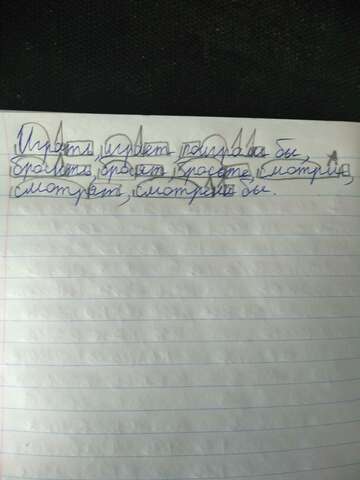 Играть, играет поиграл бы,
бросить, бросит, бросьте, смотри,
смотрят, смотрел бы.